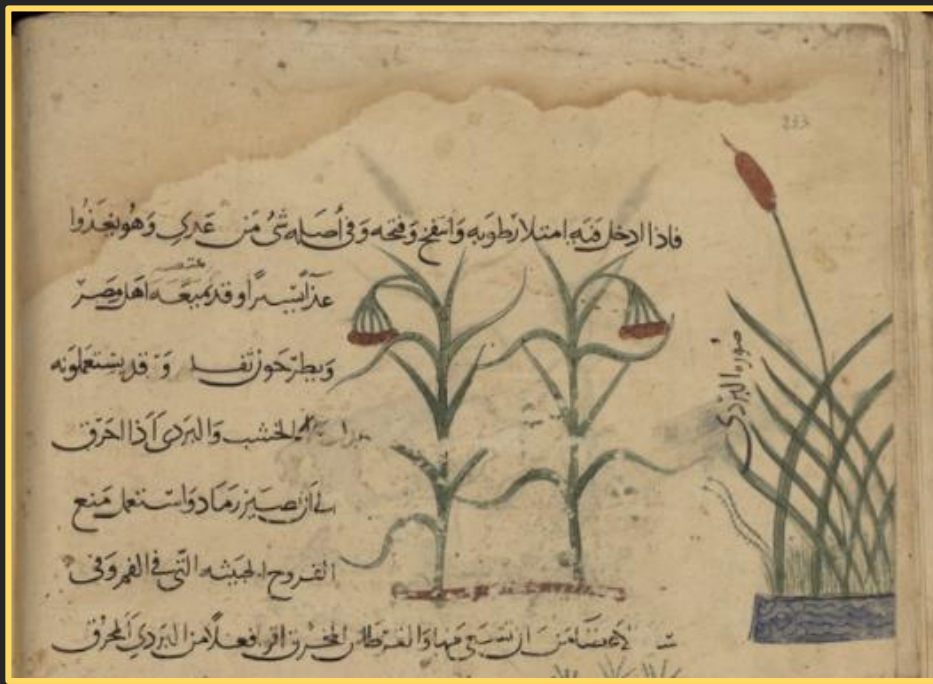 233
فاذا ادخل فيه امتلا رطوبه وانتفخ وفتحه وفي أصله شئ من غدي وهو يغذوا
يمتصه اهل مصر
ويطرحون ثفله وقد يستعملونه
الخشب والبردي اذا احرق
الي ان يصير رماد واستعمل منع
القروح الخبيثه التي في الفم وفي
ان تسعي فيها والقرطاس المحرق اقوي فعلا من البردي المحرق
صوره البردي